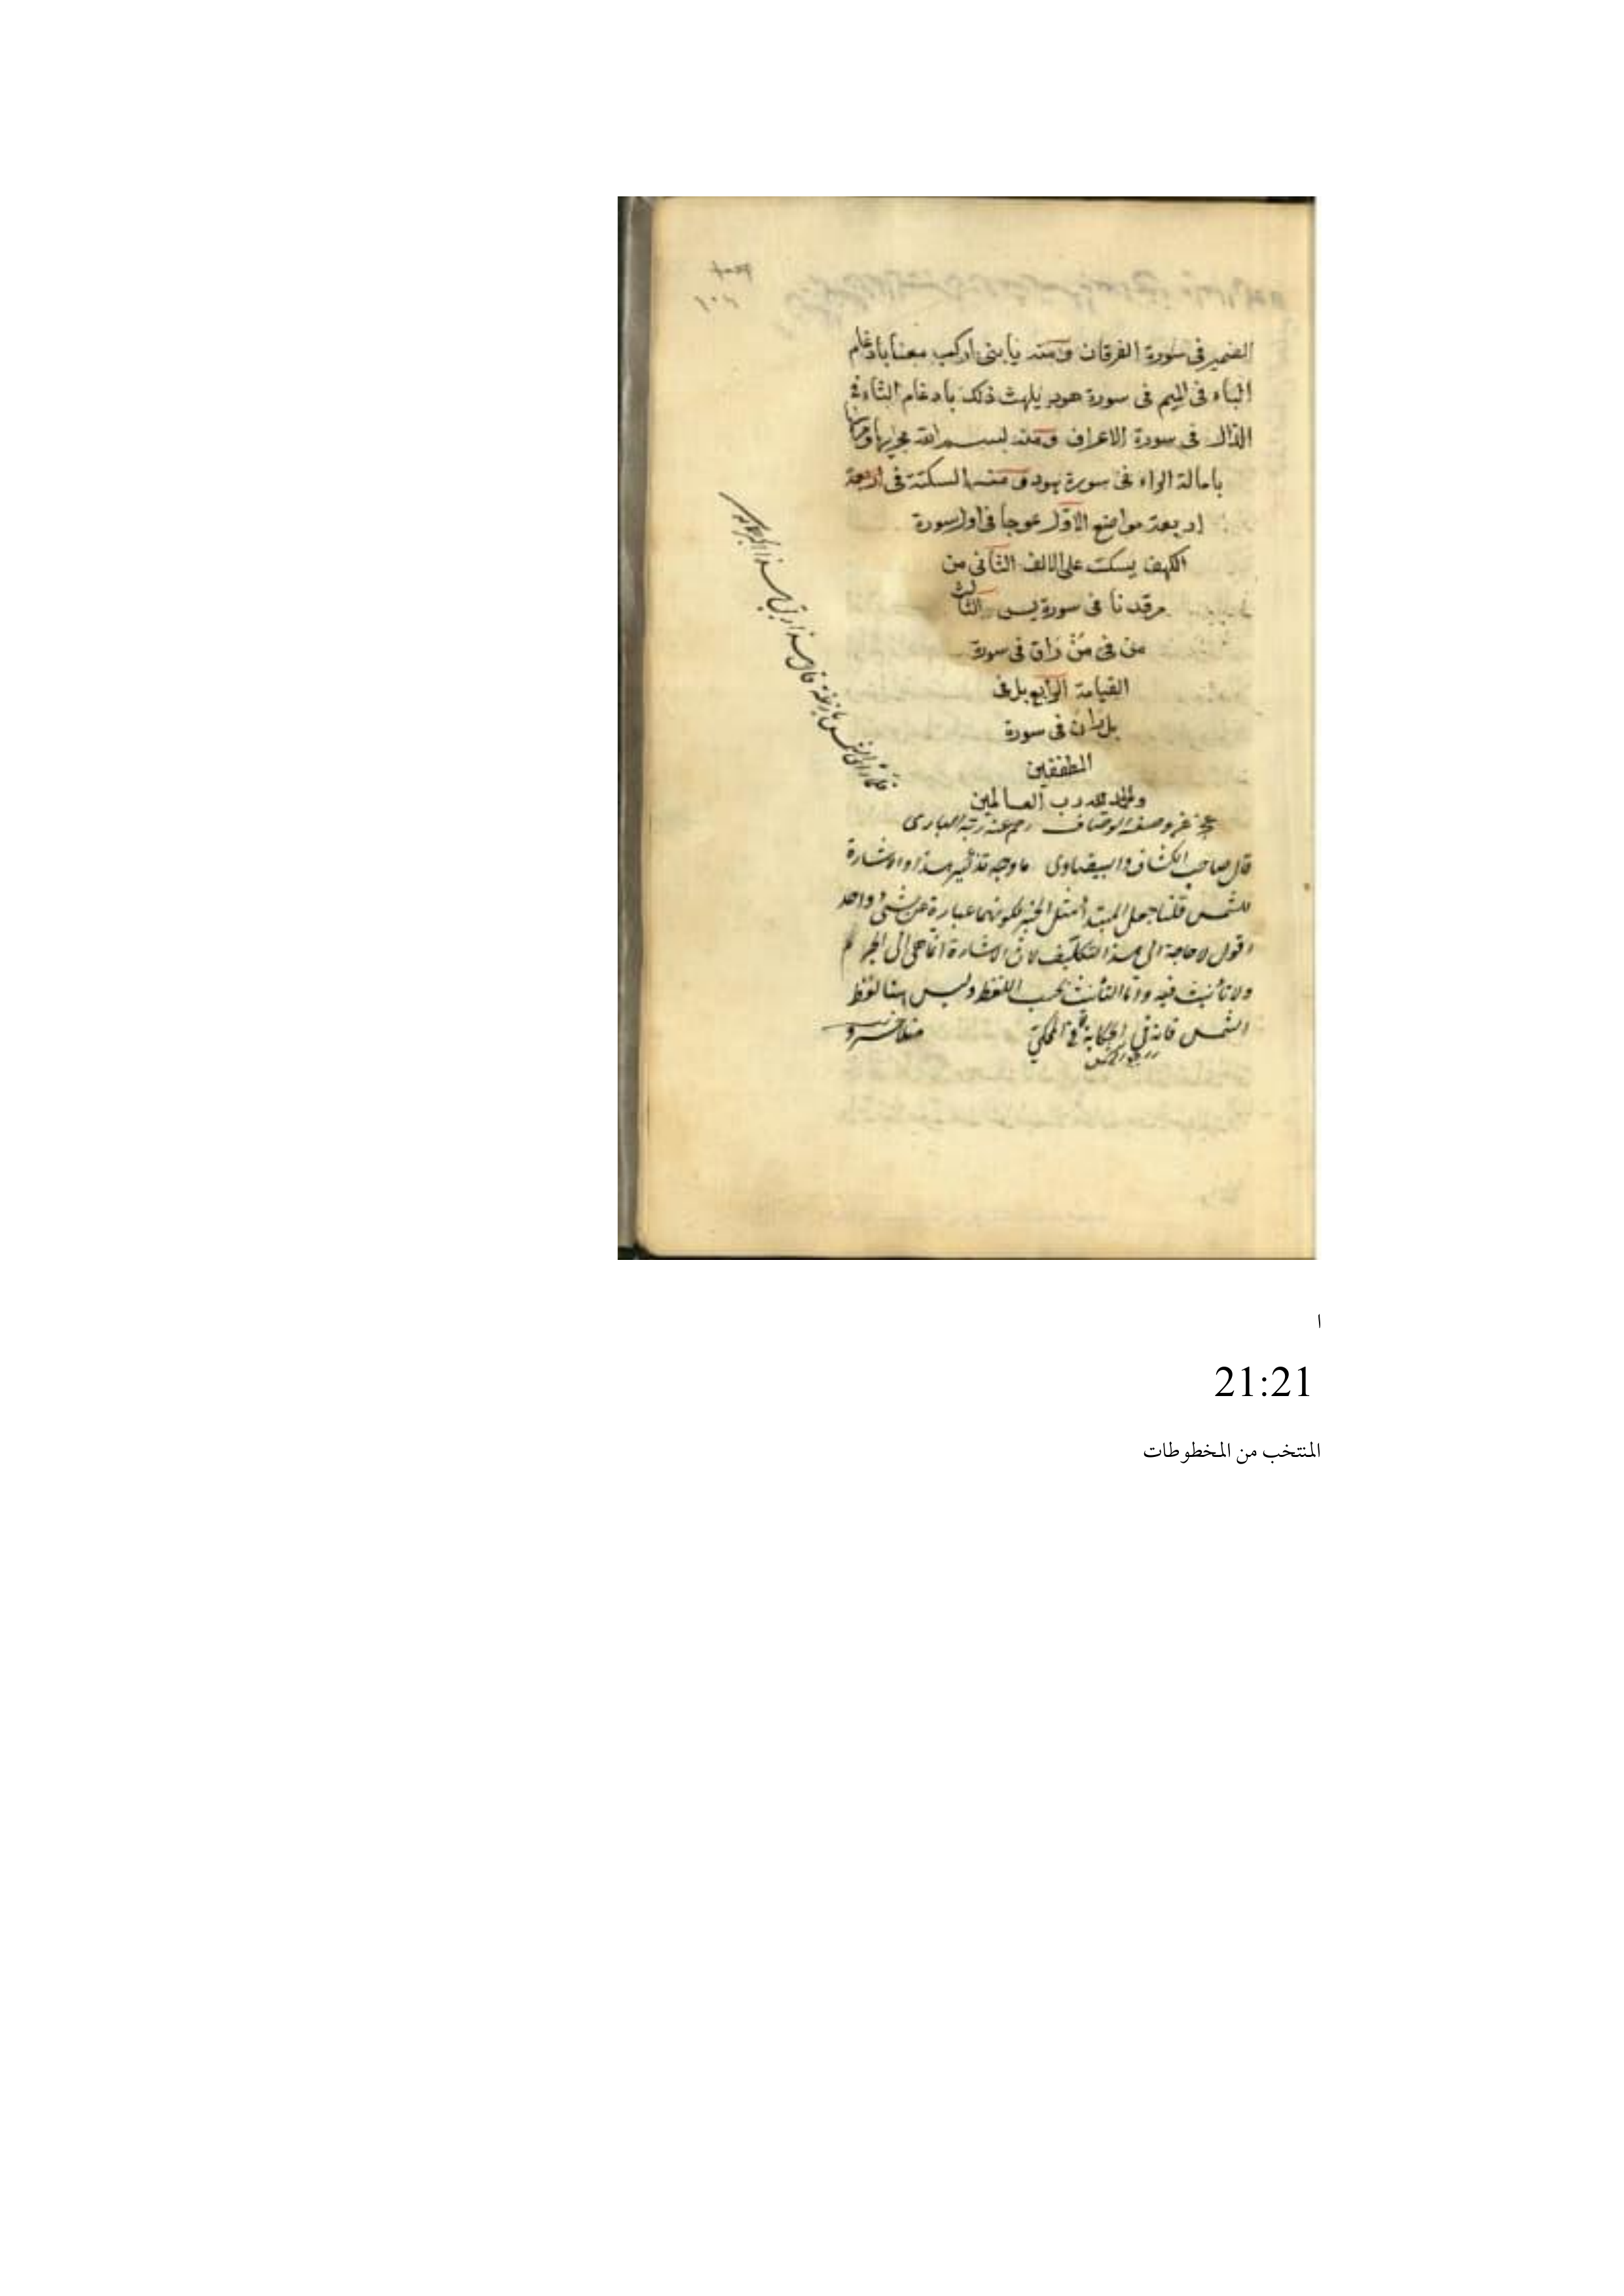 الضمير فى سورة الفرقان ومنه يا بنى اركب معنا بادغام
الباء فى الميم فى سورة هود يلهث ذلك بادغام الثاء فى
الذال فى سورة الاعراف ومنه بسم الله مجريها
بامالة الراء فى سورة هود ومنه السكتة فى اربعة
اربعة مواضع الاول عوجا فى اول سورة
الكهف يسكت على الالف الثانى من
مرقدنا فى سورة يس الثالث
من فى من راق فى سورة
القيامة الرابع بل فى
بل ران فى سورة
المطففين
والحمد لله رب العالمين
قال صاحب الكشاف والبيضاوى ما وجه تذكير هذا والاشارة
للشمس قلنا جعل المبتدأ مثل الخبر لكونهما عبارة عن شىء واحد
اقول لا حاجة الى هذا التكليف لان الاشارة انما هى الى الجرم
ولا تأنيث فيه وانما التأنيث بحسب اللفظ وليس هنا لفظ
الشمس فانه فى الحكاية فى المحكي
فلما رأى الشمس بازغة قال هذا ربى هذا اكبر
ا
21:21
المنتخب من المخطوطات